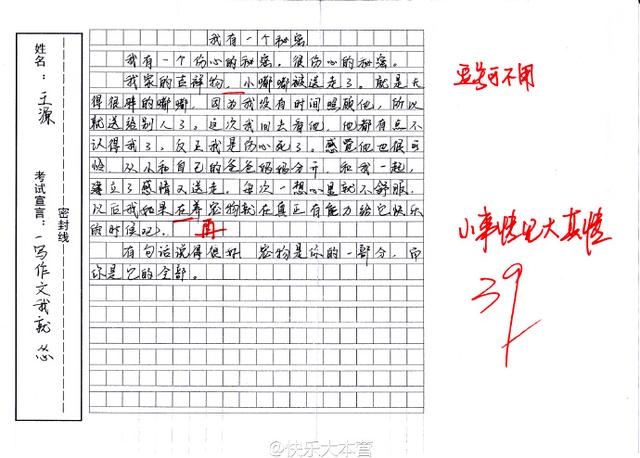 我有一个秘密
我有一个伤心的秘密。很伤心的秘密。
我家的吉祥物，小嘟嘟被送走了。就是
得很胖的嘟嘟，因为我没有时间照顾他，所以
就送给别人了。这次我回去看他，他都有点不
认得我了，反正我是伤心死了。感觉他也很可
怜，从小和自己的爸爸妈妈分开，和我一起，
建立了感情又送走。每次一想心里就不舒服，
以后我如果在养宠物就在真正有能力给它快乐
的时候吧。
再
有句话说得很好 宠物是你的一部分，而
你是它的全部。
姓名：王源
考试宣言：一写作文我就怂
密封线
逗号可不用
小事情见大真情
39
@快乐大本营